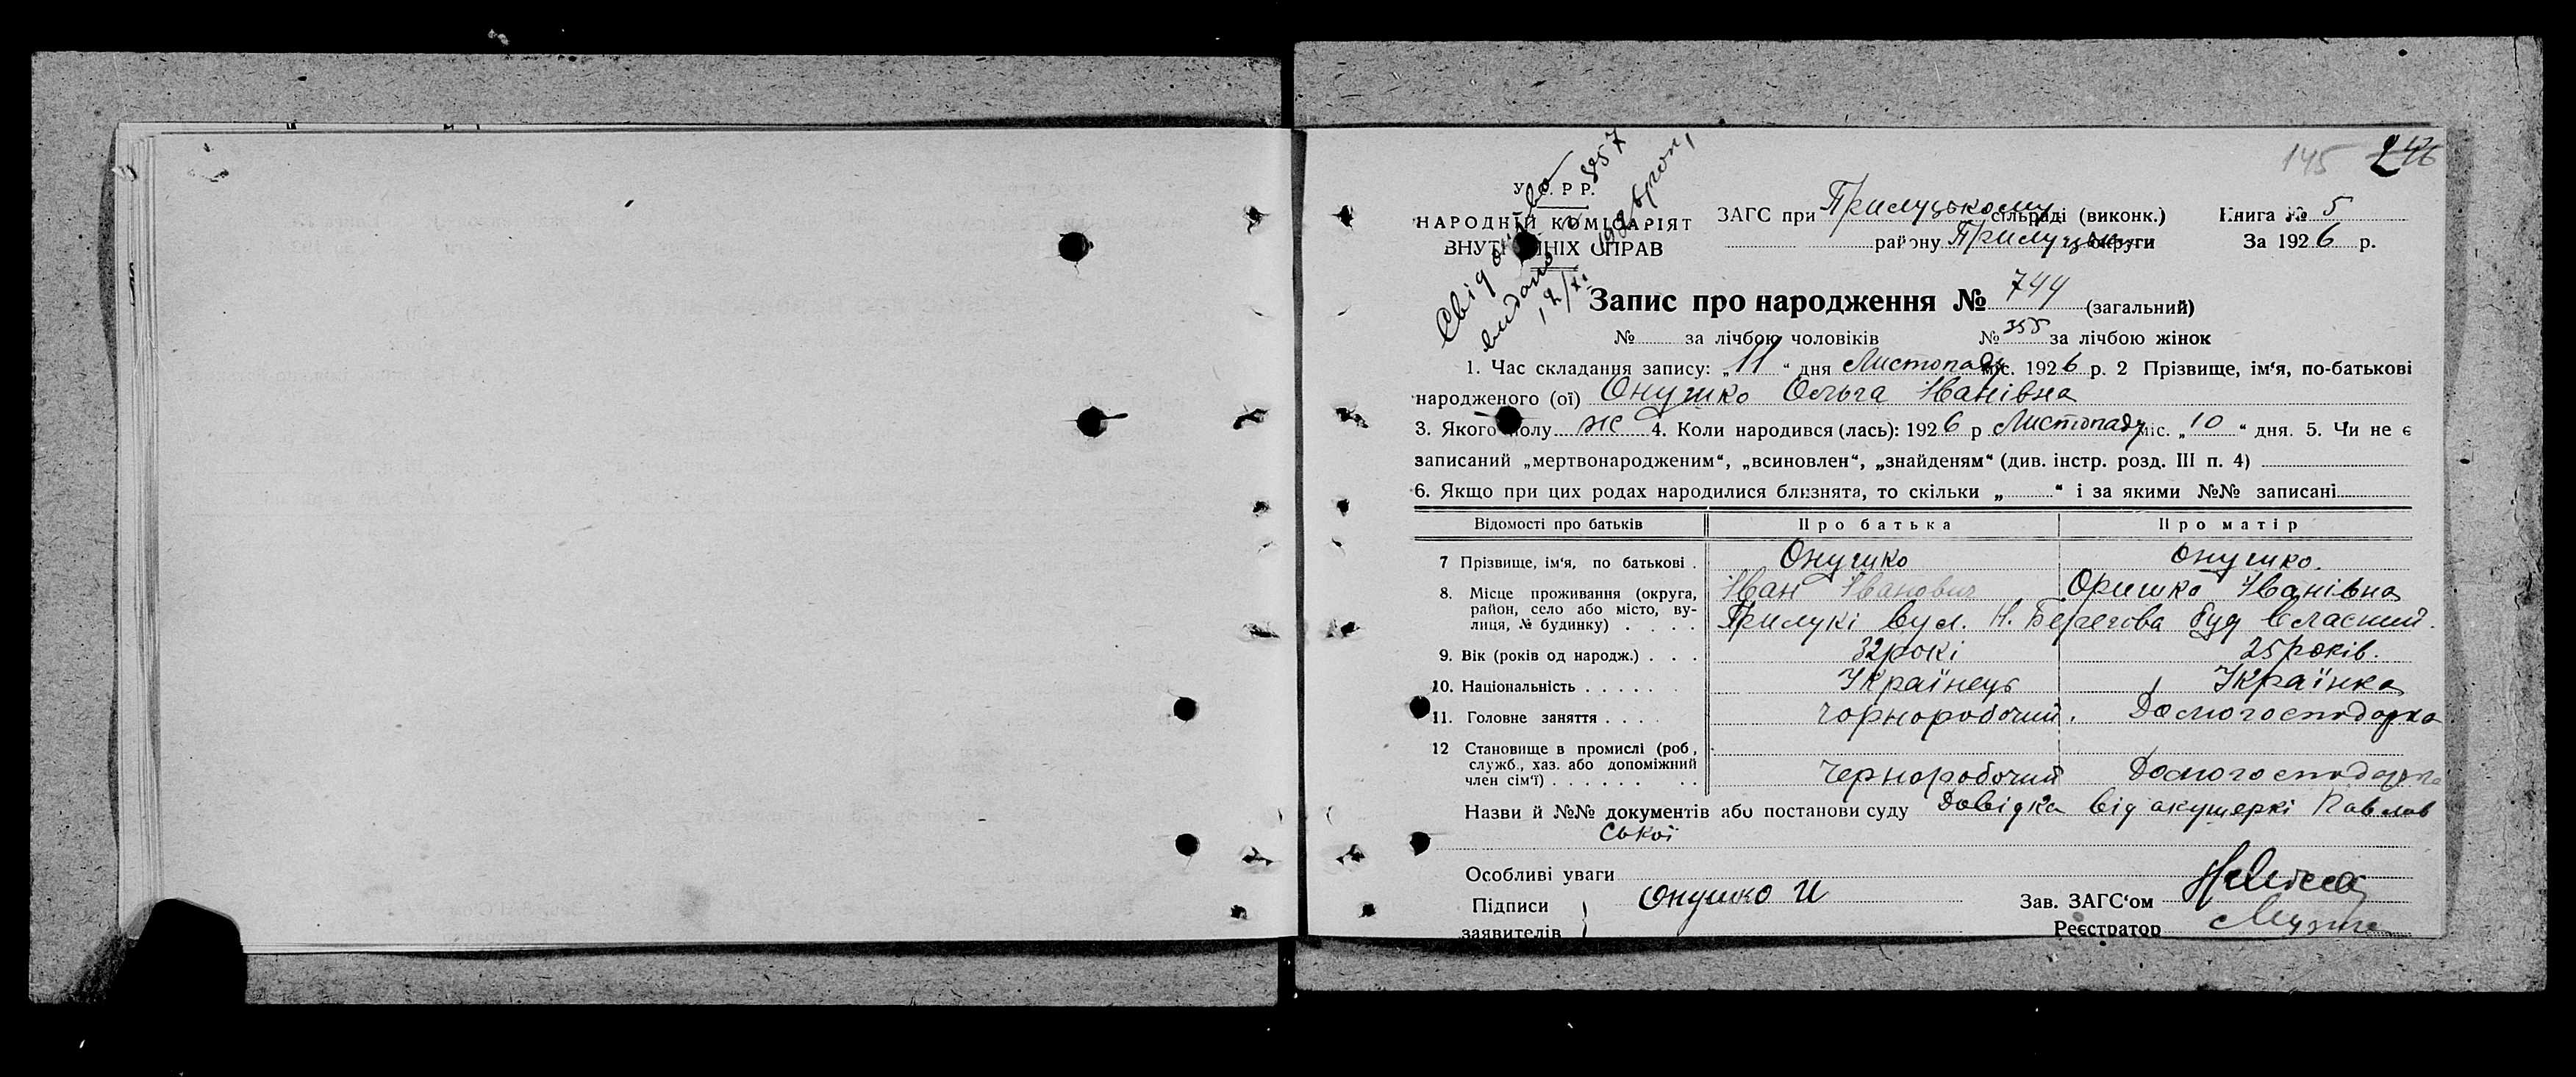 145
Свідоцтво № 857
видано
12/XI 1926 рок,
У. С. Р Р.
НАРОДНІЙ КОМІСАРІЯТ
ВНУТРІШНІХ СПРАВ
ЗАГС при Прилуцькому сільраді (виконк.) Книга № 5
району Прилуцьк округи За 1926 р.
Запис про народження № 744 (загальний)
№ за лічбою чоловіків № 355 за лічбою жінок
1. Час складання запису: „11“ дня Листопаду міс. 1926 р. 2 Прізвище, ім‘я, по-батькові
народженого (ої) Онушко Ольга Іванівна
3. Якого полу ж 4. Коли народився (лась): 1926 р Листопаду міс. „10“ дня. 5. Чи не є
записаний „мертвонародженим“, „всиновлен“, „знайденям“ (див. інстр. розд. III п. 4)
6. Якщо при цих родах народилися близнята, то скільки „ “ і за якими №№ записані
Відомості про батьків Про батька Про матір
7 Прізвище, ім‘я, по батькові . Онушко Онушко.
Іван Іванович Оришка Іванівна
8. Місце проживання (округа,
район, село або місто, ву-
лиця, № будинку) . . . . Прилукі вул. Н. Берегова буд власний.
9. Вік (років од народж.) . . . 32 рокі 25 років.
10. Національність . . . . . . Українець Українка
11. Головне заняття . . . . Чорноробочий. Домогосподарка
12 Становище в промислі (роб,
служб., хаз. або допоміжний
член сім‘ї) . . . . . . . . Черноробочий Домогосподарка
Назви й №№ документів або постанови суду Довідка від акушеркі Павлов
ської
Особливі уваги
Підписи Онушко И Зав. ЗАГС‘ом
заявителів Реєстратор